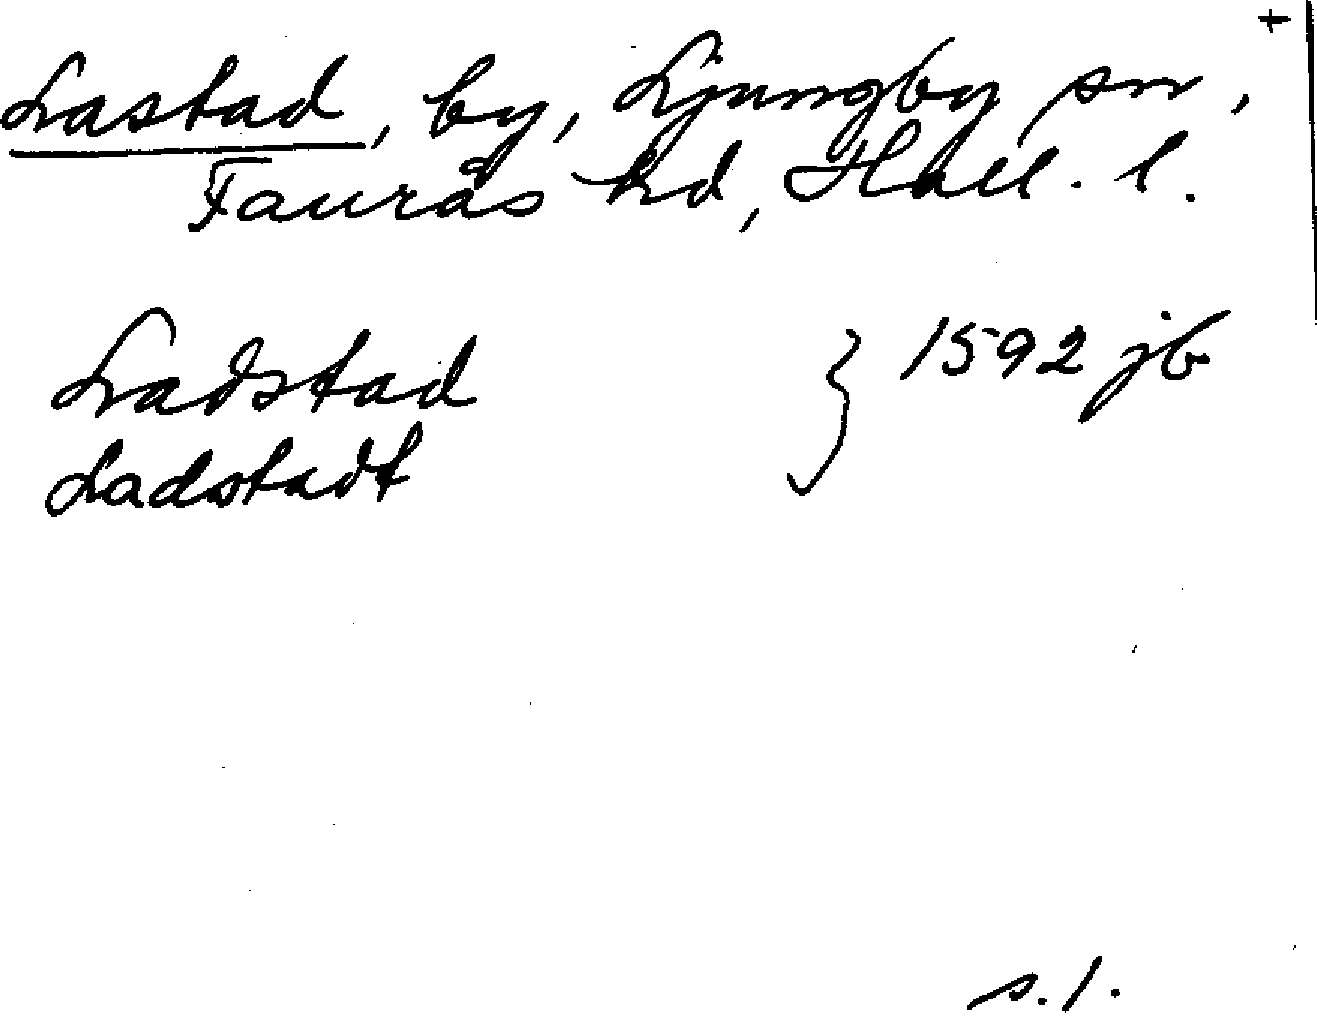 +
Lastad, by, Ljungby sn,
Faurås hd, Hall. l.
Ladstad } 1592 jb
Ladstadt
s. 1.